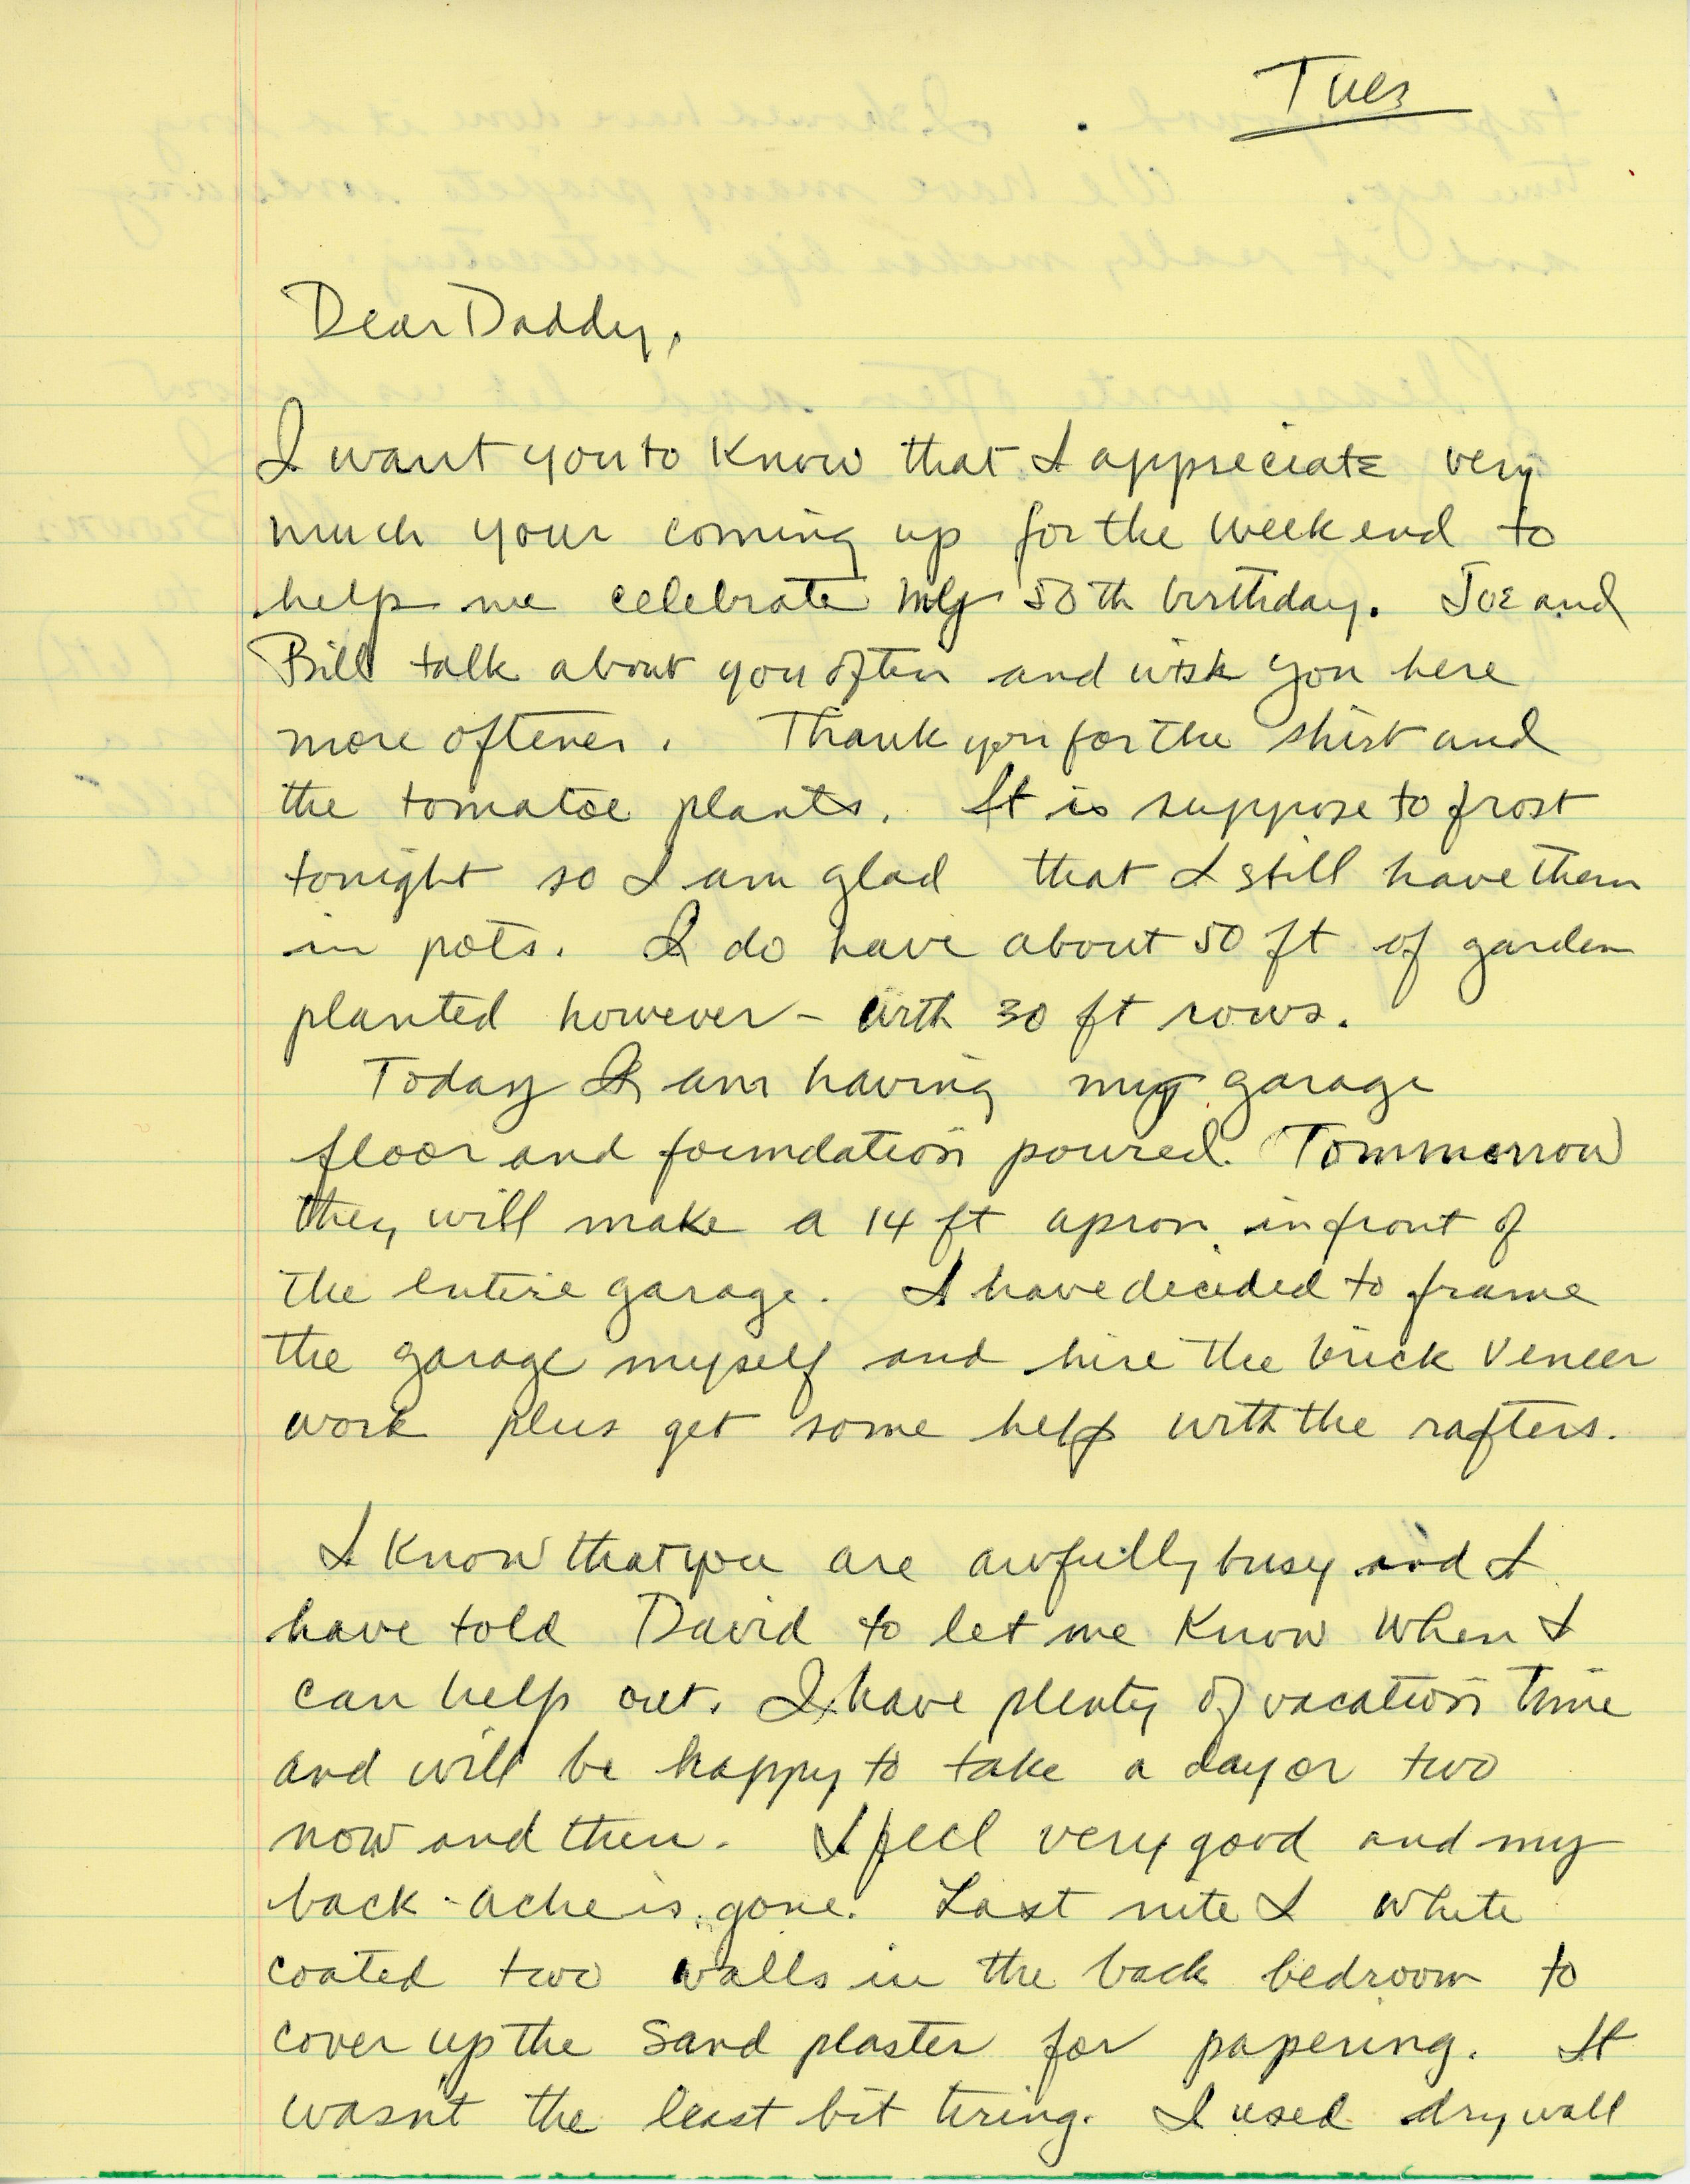 Tues
Dear Daddy,
I want you to know that I appreciate very
much your coming up for the weekend to
help me celebrate my 50th birthday. Joe and
Bill talk about you often and wish you here
more oftener. Thank you for the shirt and
the tomatoe plants. It is suppose to frost
tonight so I am glad that I still have them
in pots. I do have about 50 ft of garden
planted however - with 30 ft rows.
Today I am having my garage
floor and foundation poured. Tommorrow
they will make a 14 ft apron in front of
the entire garage. I have decided to frame
the garage myself and hire the brick veneer
work plus get some help with the rafters.
I know that you are awfully busy and I
have told David to let me know when I
can help out. I have plenty of vacation time
and will be happy to take a day or two
now and then. I feel very good and my
back-ache is gone. Last nite I white
coated two walls in the back bedroom to
cover up the sand plaster for papering. It
wasn't the least bit tiring. I used drywall